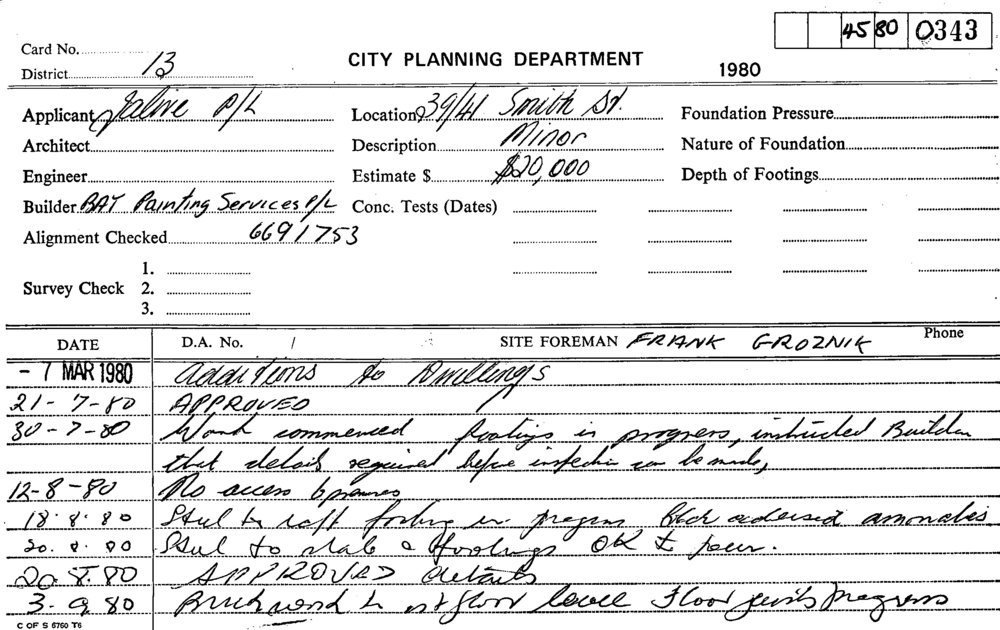 45 80 0343
Card No.
District 13
CITY PLANNING DEPARTMENT
1980
Applicant Jalive P/L
Location 39/41 Smith St.
Foundation Pressure
Architect
Description Minor
Nature of Foundation
Engineer
Estimate $ $20,000
Depth of Footings
Builder BAY Painting Services P/L
Conc. Tests (Dates)
Alignment Checked 6691753
Survey Check
1.
2.
3.
DATE D.A. No. / SITE FOREMAN FRANK GROZNIK Phone
- 7 MAR 1980 Additions to Dwellings
21-7-80 APPROVED
30-7-80 Work commenced footings in progress, instructed Builder
that details required before inspection can be made,
12-8-80 No access to premises
18.8.80 Steel to raft footing in progress,
20.8.80 Steel to slab & footings OK to pour.
20.8.80 APPROVED details
3-9-80 Brickwork to 1st floor level Floor joists progress
C OF S 6760 T6